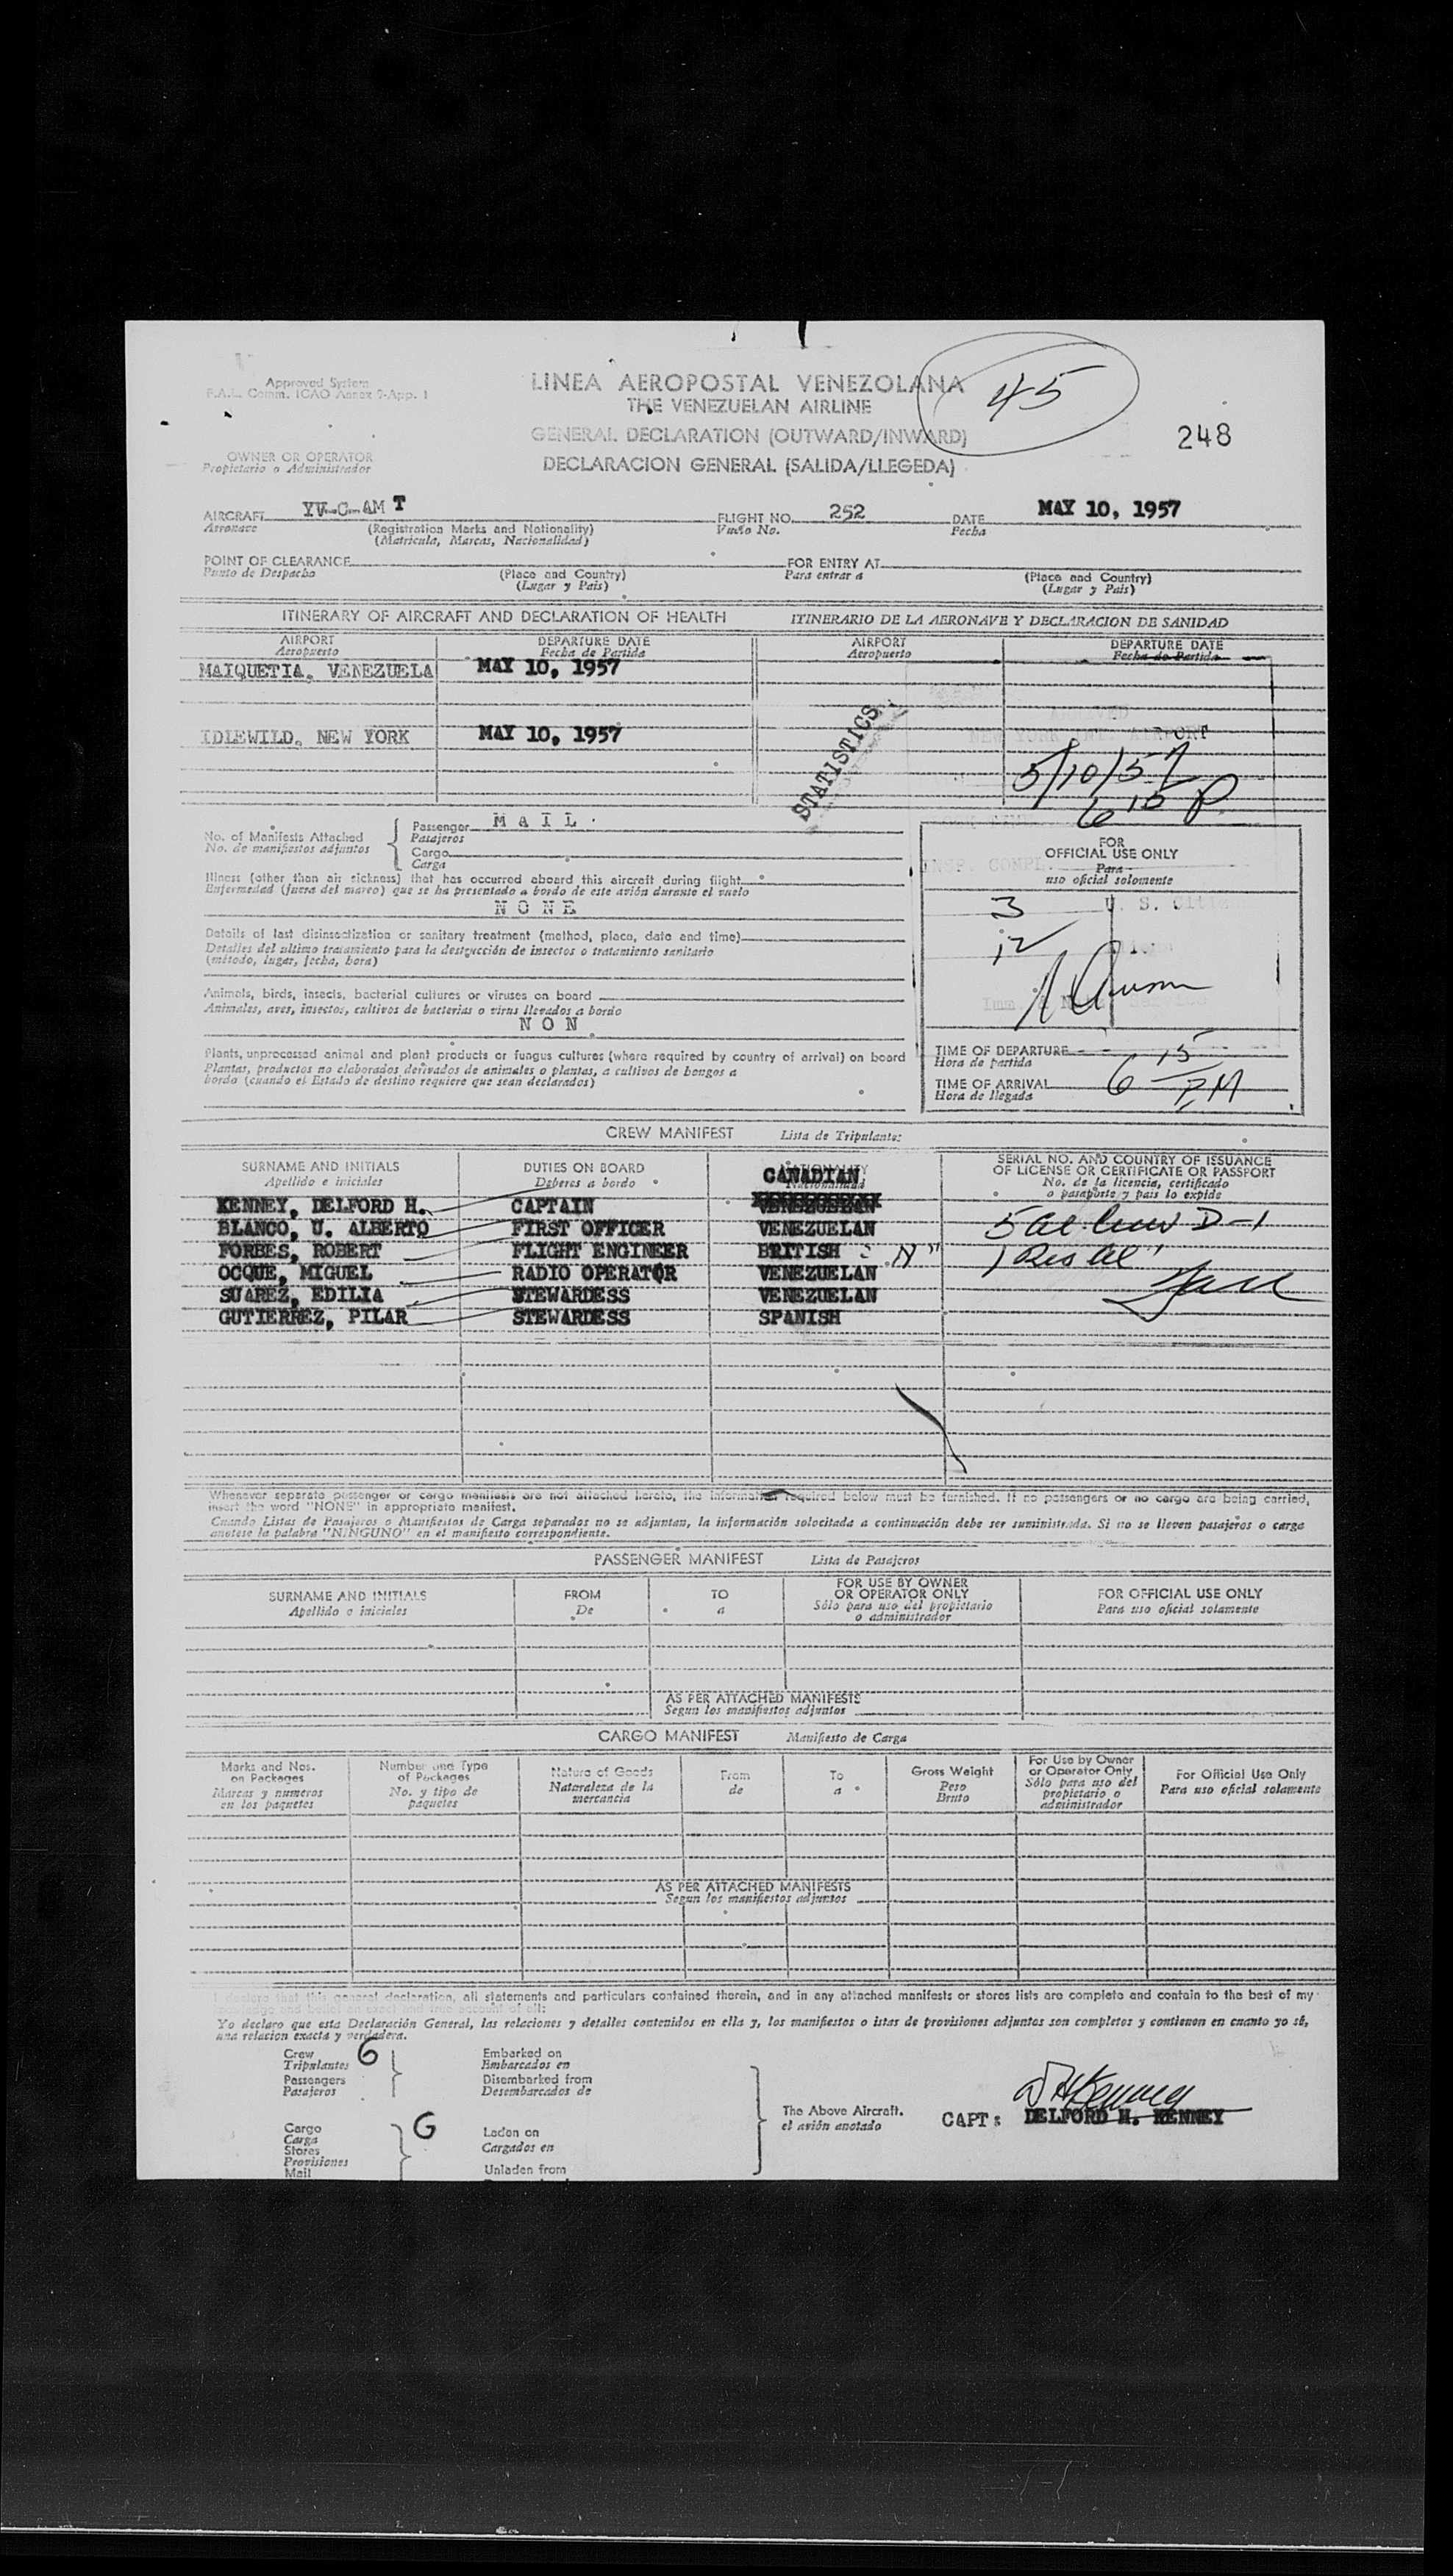 Approved System
F.A.L. Comm. ICAO Annex 9-App. 1
LINEA AEROPOSTAL VENEZOLANA
THE VENEZUELAN AIRLINE
45
GENERAL DECLARATION (OUTWARD/INWARD)
248
OWNER OR OPERATOR
Propietario o Administrador
DECLARACION GENERAL (SALIDA/LLEGEDA)
AIRCRAFT YV-C-AMT FLIGHT NO. 252 DATE MAY 10, 1957
Aeronave (Registration Marks and Nationality) Vuelo No. Fecha
(Matricula, Marcas, Nacionalidad)
POINT OF CLEARANCE FOR ENTRY AT
Punto de Despacho (Place and Country) Para entrar a (Place and Country)
(Lugar y Pais) (Lugar y Pais)
ITINERARY OF AIRCRAFT AND DECLARATION OF HEALTH ITINERARIO DE LA AERONAVE Y DECLARACION DE SANIDAD
AIRPORT DEPARTURE DATE AIRPORT DEPARTURE DATE
Aeropuerto Fecha de Partida Aeropuerto Fecha de Partida
MAIQUETIA, VENEZUELA MAY 10, 1957
ARRIVED
IDLEWILD, NEW YORK MAY 10, 1957
NEW YORK INT. AIRPORT
STATISTICS
5/10/57
6 15 P
No. of Manifests Attached
No. de manifiestos adjuntos
Passenger MAIL
Pasajeros
Cargo
Carga
FOR
OFFICIAL USE ONLY
Para
uso oficial solomente
INSP. COMPL.
Illness (other than air sickness) that has occurred aboard this aircraft during flight
Enfermedad (fuera del mareo) que se ha presentado a bordo de este avión durante el vuelo
NONE
3 U. S. Citiz
12
Details of last disinsectization or sanitary treatment (method, place, date and time)
Detalles del ultimo tratamiento para la destrucción de insectos o tratamiento sanitario
(método, lugar, fecha, hora)
Animals, birds, insects, bacterial cultures or viruses on board
Animales, aves, insectos, cultivos de bacterias o virus llevados a bordo
NON
Plants, unprocessed animal and plant products or fungus cultures (where required by country of arrival) on board
Plantas, productos no elaborados derivados de animales o plantas, a cultivos de hongos a
bordo (cuando el Estado de destino requiere que sean declarados)
TIME OF DEPARTURE
Hora de partida
TIME OF ARRIVAL 6 15 PM
Hora de llegada
CREW MANIFEST Lista de Tripulantes
SURNAME AND INITIALS DUTIES ON BOARD NATIONALITY SERIAL NO. AND COUNTRY OF ISSUANCE
OF LICENSE OR CERTIFICATE OR PASSPORT
Apellido e iniciales Deberes a bordo Nacionalidad No. de la licencia, certificado
o pasaporte y pais lo expide
CANADIAN
KENNEY, DELFORD H. CAPTAIN VENEZUELAN
BLANCO, U. ALBERTO FIRST OFFICER VENEZUELAN
5 al. crew D-1
FORBES, ROBERT FLIGHT ENGINEER BRITISH "N"
1 Res al
OCQUE, MIGUEL RADIO OPERATOR VENEZUELAN
SUAREZ, EDILIA STEWARDESS VENEZUELAN
GUTIERREZ, PILAR STEWARDESS SPANISH
Whenever separate passenger or cargo manifests are not attached hereto, the information required below must be furnished. If no passengers or no cargo are being carried,
insert the word "NONE" in appropriate manifest.
Cuando Listas de Pasajeros o Manifiestos de Carga separados no se adjuntan, la información solocitada a continuación debe ser suministrada. Si no se lleven pasajeros o carga
anotese la palabra "NINGUNO" en el manifiesto correspondiente.
PASSENGER MANIFEST Lista de Pasajeros
SURNAME AND INITIALS FROM TO FOR USE BY OWNER
OR OPERATOR ONLY FOR OFFICIAL USE ONLY
Apellido e iniciales De a Sólo para uso del propietario
o administrador Para uso oficial solamente
AS PER ATTACHED MANIFESTS
Segun los manifiestos adjuntos
CARGO MANIFEST Manifiesto de Carga
Marks and Nos.
on Packages
Marcas y numeros
en los paquetes
Number and Type
of Packages
No. y tipo de
paquetes
Nature of Goods
Naturaleza de la
mercancia
From
de
To
a
Gross Weight
Peso
Bruto
For Use by Owner
or Operator Only
Sólo para uso del
propietario o
administrador
For Official Use Only
Para uso oficial solamente
AS PER ATTACHED MANIFESTS
Segun los manifiestos adjuntos
I declare that this general declaration, all statements and particulars contained therein, and in any attached manifests or stores lists are complete and contain to the best of my
knowledge and belief an exact and true account of all:
Yo declaro que esta Declaración General, las relaciones y detalles contenidos en ella y, los manifiestos o istas de provisiones adjuntos son completos y contienen en cuanto yo sé,
una relacion exacta y verdadera.
Crew 6 Embarked on
Tripulantes Embarcados en
Passengers Disembarked from
Pasajeros Desembarcados de
The Above Aircraft.
el avión anotado
DHKenney
CAPT: DELFORD H. KENNEY
Cargo G Laden on
Carga Cargados en
Stores
Provisiones
Mail Unladen from